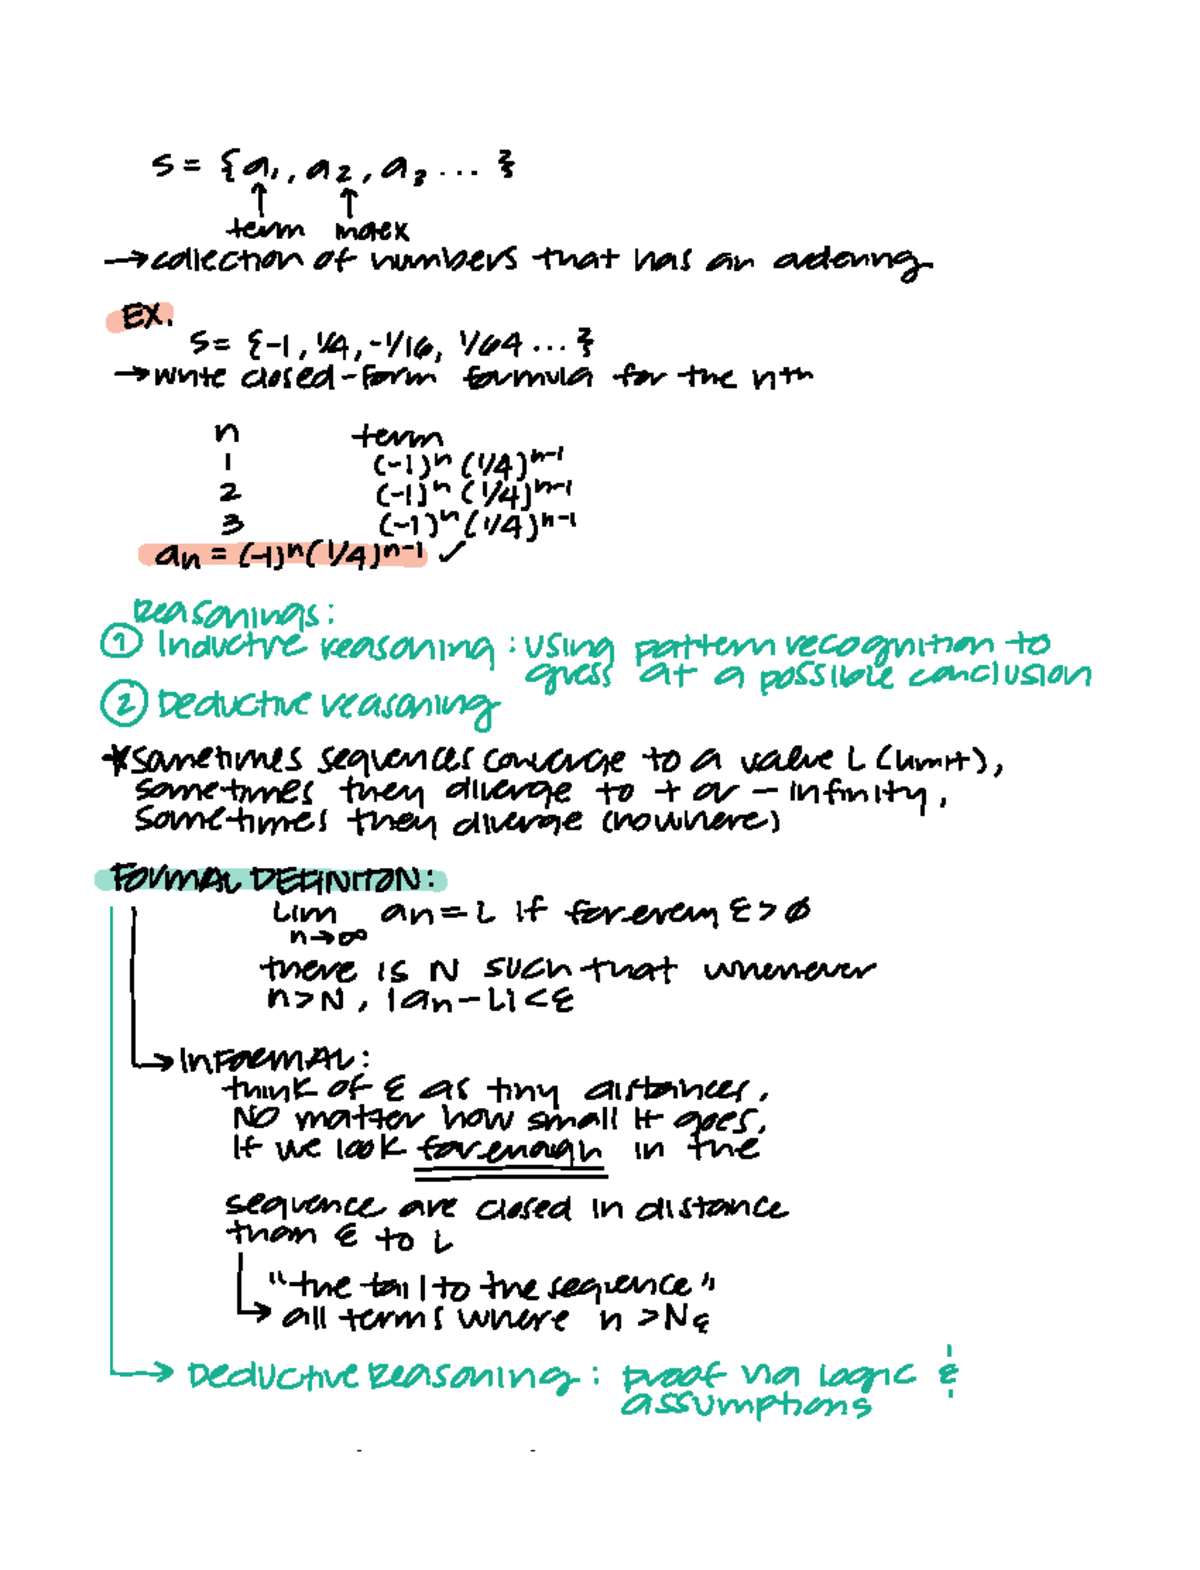 S = {a₁, a₂, a₃ ... }
↑ ↑
term index
→ collection of numbers that has an ordering
EX.
S = {-1, 1/4, -1/16, 1/64 ... }
→ write closed-form formula for the nth
n term
1 (-1)ⁿ (1/4)ⁿ⁻¹
2 (-1)ⁿ (1/4)ⁿ⁻¹
3 (-1)ⁿ (1/4)ⁿ⁻¹
aₙ = (-1)ⁿ(1/4)ⁿ⁻¹ ✓
Reasonings:
① Inductive reasoning : using pattern recognition to
guess at a possible conclusion
② Deductive reasoning
*sometimes sequences converge to a value L (limit),
sometimes they diverge to + or - infinity,
sometimes they diverge (nowhere)
FORMAL DEFINITON:
Lim aₙ = L if for every ε > 0
n→∞
there is N such that whenever
n > N, |aₙ - L| < ε
→ INFORMAL:
think of ε as tiny distances,
NO matter how small it goes,
If we look far enough in the
sequence are closed in distance
than ε to L
"the tail to the sequence"
→ all terms where n > Nε
→ Deductive Reasoning : proof via logic &
assumptions